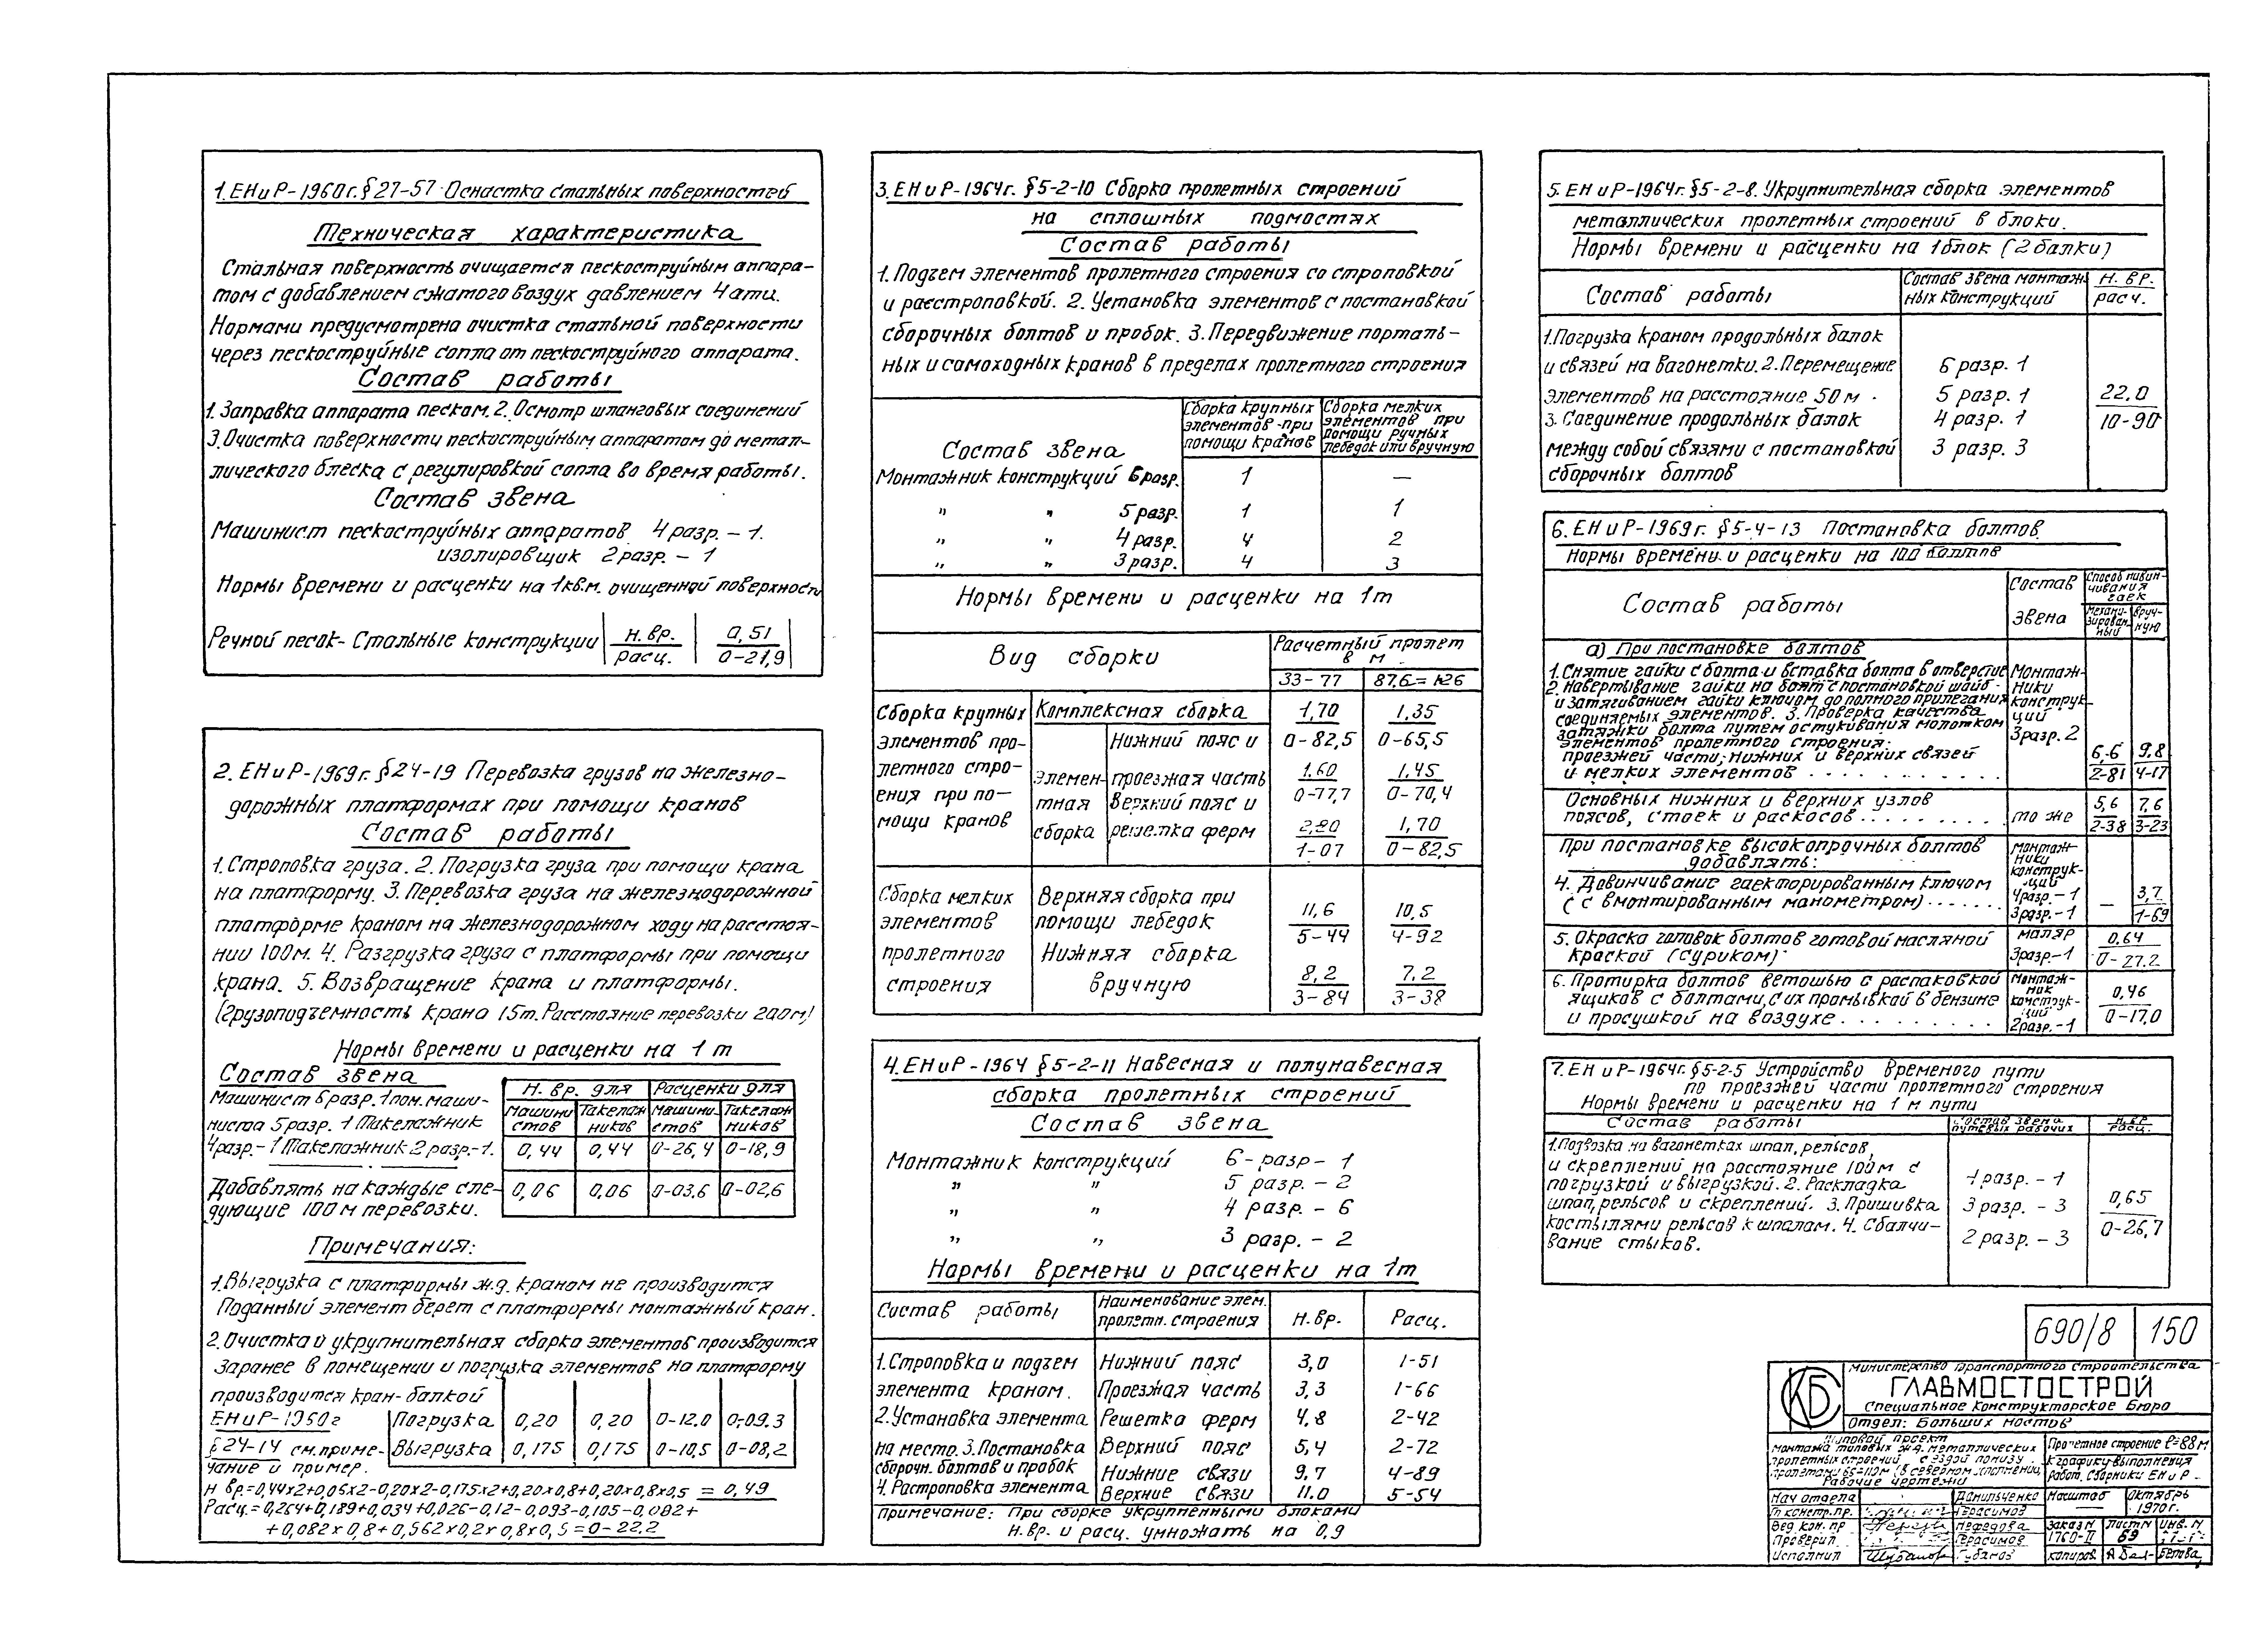 1. ЕНиР-1960г. § 27-57 Оснастка стальных поверхностей
Техническая характеристика
Стальная поверхность очищается пескоструйным аппара-
том с добавлением сжатого воздух давлением 4 ати.
Нормами предусмотрена очистка стальной поверхности
через пескоструйные сопла от пескоструйного аппарата.
Состав работы
1. Заправка аппарата песком. 2. Осмотр шланговых соединений
3. Очистка поверхности пескоструйным аппаратом до метал-
лического блеска с регулировкой сопла во время работы.
Состав звена
Машинист пескоструйных аппаратов 4 разр. – 1.
изолировщик 2 разр. – 1
Нормы времени и расценки на 1 кв.м. очищенной поверхности
Речной песок - Стальные конструкции | н. вр. | 0,51
расц. | 0-21,9
2. ЕНиР-1969г. § 24-19 Перевозка грузов на железно-
дорожных платформах при помощи кранов
Состав работы
1. Строповка груза. 2. Погрузка груза при помощи крана
на платформу. 3. Перевозка груза на железнодорожной
платформе краном на железнодорожном ходу на расстоя-
нии 100м. 4. Разгрузка груза с платформы при помощи
крана. 5. Возвращение крана и платформы.
(грузоподъемность крана 15т. Расстояние перевозки 200м)
Нормы времени и расценки на 1 т
Состав звена
Н. вр. для | Расценки для
Машинист 6 разр. 1 пом. маши-
ниста 5 разр. 1 Такелажник
4 разр. – 1 Такелажник 2 разр. – 1.
Машини стов | Такелаж ников | Машини- стов | Такелаж ников
0,44 | 0,44 | 0-26,4 | 0-18,9
Добавлять на каждые сле-
дующие 100м перевозки.
0,06 | 0,06 | 0-03,6 | 0-02,6
Примечания:
1. Выгрузка с платформы ж.д. краном не производится
Поданный элемент берет с платформы монтажный кран.
2. Очистка и укрупнительная сборка элементов производится
заранее в помещении и погрузка элементов на платформу
производится кран-балкой
ЕНиР-1960г | Погрузка | 0,20 | 0,20 | 0-12.0 | 0-09.3
§ 24-14 см. приме- | Выгрузка | 0,175 | 0,175 | 0-10,5 | 0-08,2
чание и пример.
Н вр.=0,44х2+0,06х2-0,20х2-0,175х2+0,20х0,8+0,20х0,8х0,5 = 0,49
Расц.=0,264+0,189+0,034+0,026-0,12-0,093-0,105-0,082+
+0,082х0,8+0,562х0,2х0,8х0,5=0-22.2
3. ЕНиР-1964г. § 5-2-10 Сборка пролетных строений
на сплошных подмостях
Состав работы
1. Подъем элементов пролетного строения со строповкой
и расстроповкой. 2. Установка элементов с постановкой
сборочных болтов и пробок. 3. Передвижение порталь-
ных и самоходных кранов в пределах пролетного строения
Состав звена
Сборка крупных элементов при помощи кранов
Сборка мелких элементов при помощи ручных лебедок или вручную
Монтажник конструкций 6 разр. | 1 | –
" " 5 разр. | 1 | 1
" " 4 разр. | 4 | 2
" " 3 разр. | 4 | 3
Нормы времени и расценки на 1т
Вид сборки | Расчетный пролет в м.
33-77 | 87.6=126
Сборка крупных элементов про- летного стро- ения при по- мощи кранов
Комплексная сборка | 1,70 | 1,35
0-82,5 | 0-65,5
Элемен- тная сборка
Нижний пояс и проезжая часть | 1.60 | 1.45
0-77,7 | 0-70,4
Верхний пояс и решетка ферм | 2,20 | 1,70
1-07 | 0-82,5
Сборка мелких элементов пролетного строения
Верхняя сборка при помощи лебедок | 11,6 | 10,5
5-44 | 4-92
Нижняя сборка вручную | 8,2 | 7.2
3-84 | 3-38
4. ЕНиР-1964 § 5-2-11 Навесная и полунавесная
сборка пролетных строений
Состав звена
Монтажник конструкций 6 - разр – 1
" " 5 разр. – 2
" " 4 разр. – 6
" " 3 разр. – 2
Нормы времени и расценки на 1т
Состав работы | Наименование элем. пролетн. строения | Н. вр. | Расц.
1. Строповка и подъем | Нижний пояс | 3,0 | 1-51
элемента краном. | Проезжая часть | 3,3 | 1-66
2. Установка элемента | Решетка ферм | 4,8 | 2-42
на место. 3. Постановка | Верхний пояс | 5,4 | 2-72
сборочн. болтов и пробок | Нижние связи | 9,7 | 4-89
4. Растроповка элемента | Верхние связи | 11.0 | 5-54
примечание: При сборке укрупненными блоками
Н. вр. и расц. умножать на 0,9
5. ЕНиР-1964г. § 5-2-8. Укрупнительная сборка элементов
металлических пролетных строений в блоки.
Нормы времени и расценки на 1 блок (2 балки)
Состав работы | Состав звена монтаж- ных конструкций | Н. вр. расч.
1. Погрузка краном продольных балок
и связей на вагонетки. 2. Перемещение | 6 разр. 1
элементов на расстояние 50м. | 5 разр. 1 | 22,0
3. Соединение продольных балок | 4 разр. 1 | 10-90
между собой связями с постановкой | 3 разр. 3
сборочных болтов
6. ЕНиР-1969г. § 5-4-13 Постановка болтов
Нормы времени и расценки на 100 болтов
Состав работы | Состав звена | Способ навин- чивания гаек
Механи- зирован- ный | вруч- ную
а) При постановке болтов
1. Снятие гайки с болта и вставка болта в отверстие
2. Навертывание гайки на болт с постановкой шайб
и затягиванием гайки ключом до полного прилегания
соединяемых элементов. 3. Проверка качества
затяжки болта путем остукивания молотком
элементов пролетного строения:
проезжей части, нижних и верхних связей
и мелких элементов . . . . . . . . . .
Монтаж- ники конструк- ций 3 разр. 2
6,6 | 9.8
2-81 | 4-17
Основных нижних и верхних узлов
поясов, стоек и раскосов . . . . . . . . . | то же
5,6 | 7,6
2-38 | 3-23
При постановке высокопрочных болтов
добавлять:
4. Довинчивание гаекторированным ключом
(с вмонтированным манометром) . . . . . .
монтаж- ники конструк- ций 4 разр. – 1 3 разр. – 1
– | 3,7
1-69
5. Окраска головок болтов готовой масляной
краской (суриком)
маляр 3 разр. – 1
0,64
0-27.2
6. Протирка болтов ветошью с распаковкой
ящиков с болтами, с их промывкой в бензине
и просушкой на воздухе . . . . . . . . .
монтаж- ник конструк- ций 2 разр. – 1
0,46
0-17,0
7. ЕНиР-1964г. § 5-2-5 Устройство временого пути
по проезжей части пролетного строения
Нормы времени и расценки на 1 м пути
Состав работы | Состав звена путевых рабочих | Н.ВР. Расц.
1. Подвозка на вагонетках шпал, рельсов,
и скреплений на расстояние 100м с
погрузкой и выгрузкой. 2. Раскладка
шпал, рельсов и скреплений. 3. Пришивка
костылями рельсов к шпалам. 4. Сбалчи-
вание стыков.
4 разр. – 1
3 разр. – 3
2 разр. – 3
0,65
0-26,7
690/8 | 150
КБ
Министерство транспортного строительства
ГЛАВМОСТОСТРОЙ
Специальное Конструкторское Бюро
Отдел: Больших мостов
Типовой проект
монтажа типовых ж.д. металлических
пролетных строений с ездой понизу
(в северном исполнении)
Рабочие чертежи
Пролетное строение ℓ=88м
К графику выполнения
работ. Сборники ЕНиР
Нач отдела | Данильченко | Масштаб | Октябрь 1970г.
Гл констр. пр. | Герасимов | –
Вед кон. пр | Нефедова | Заказ N 1760-II | Лист N 69 | Инв. N
Проверил | Герасимов
Исполнил | Губанов | копиров.